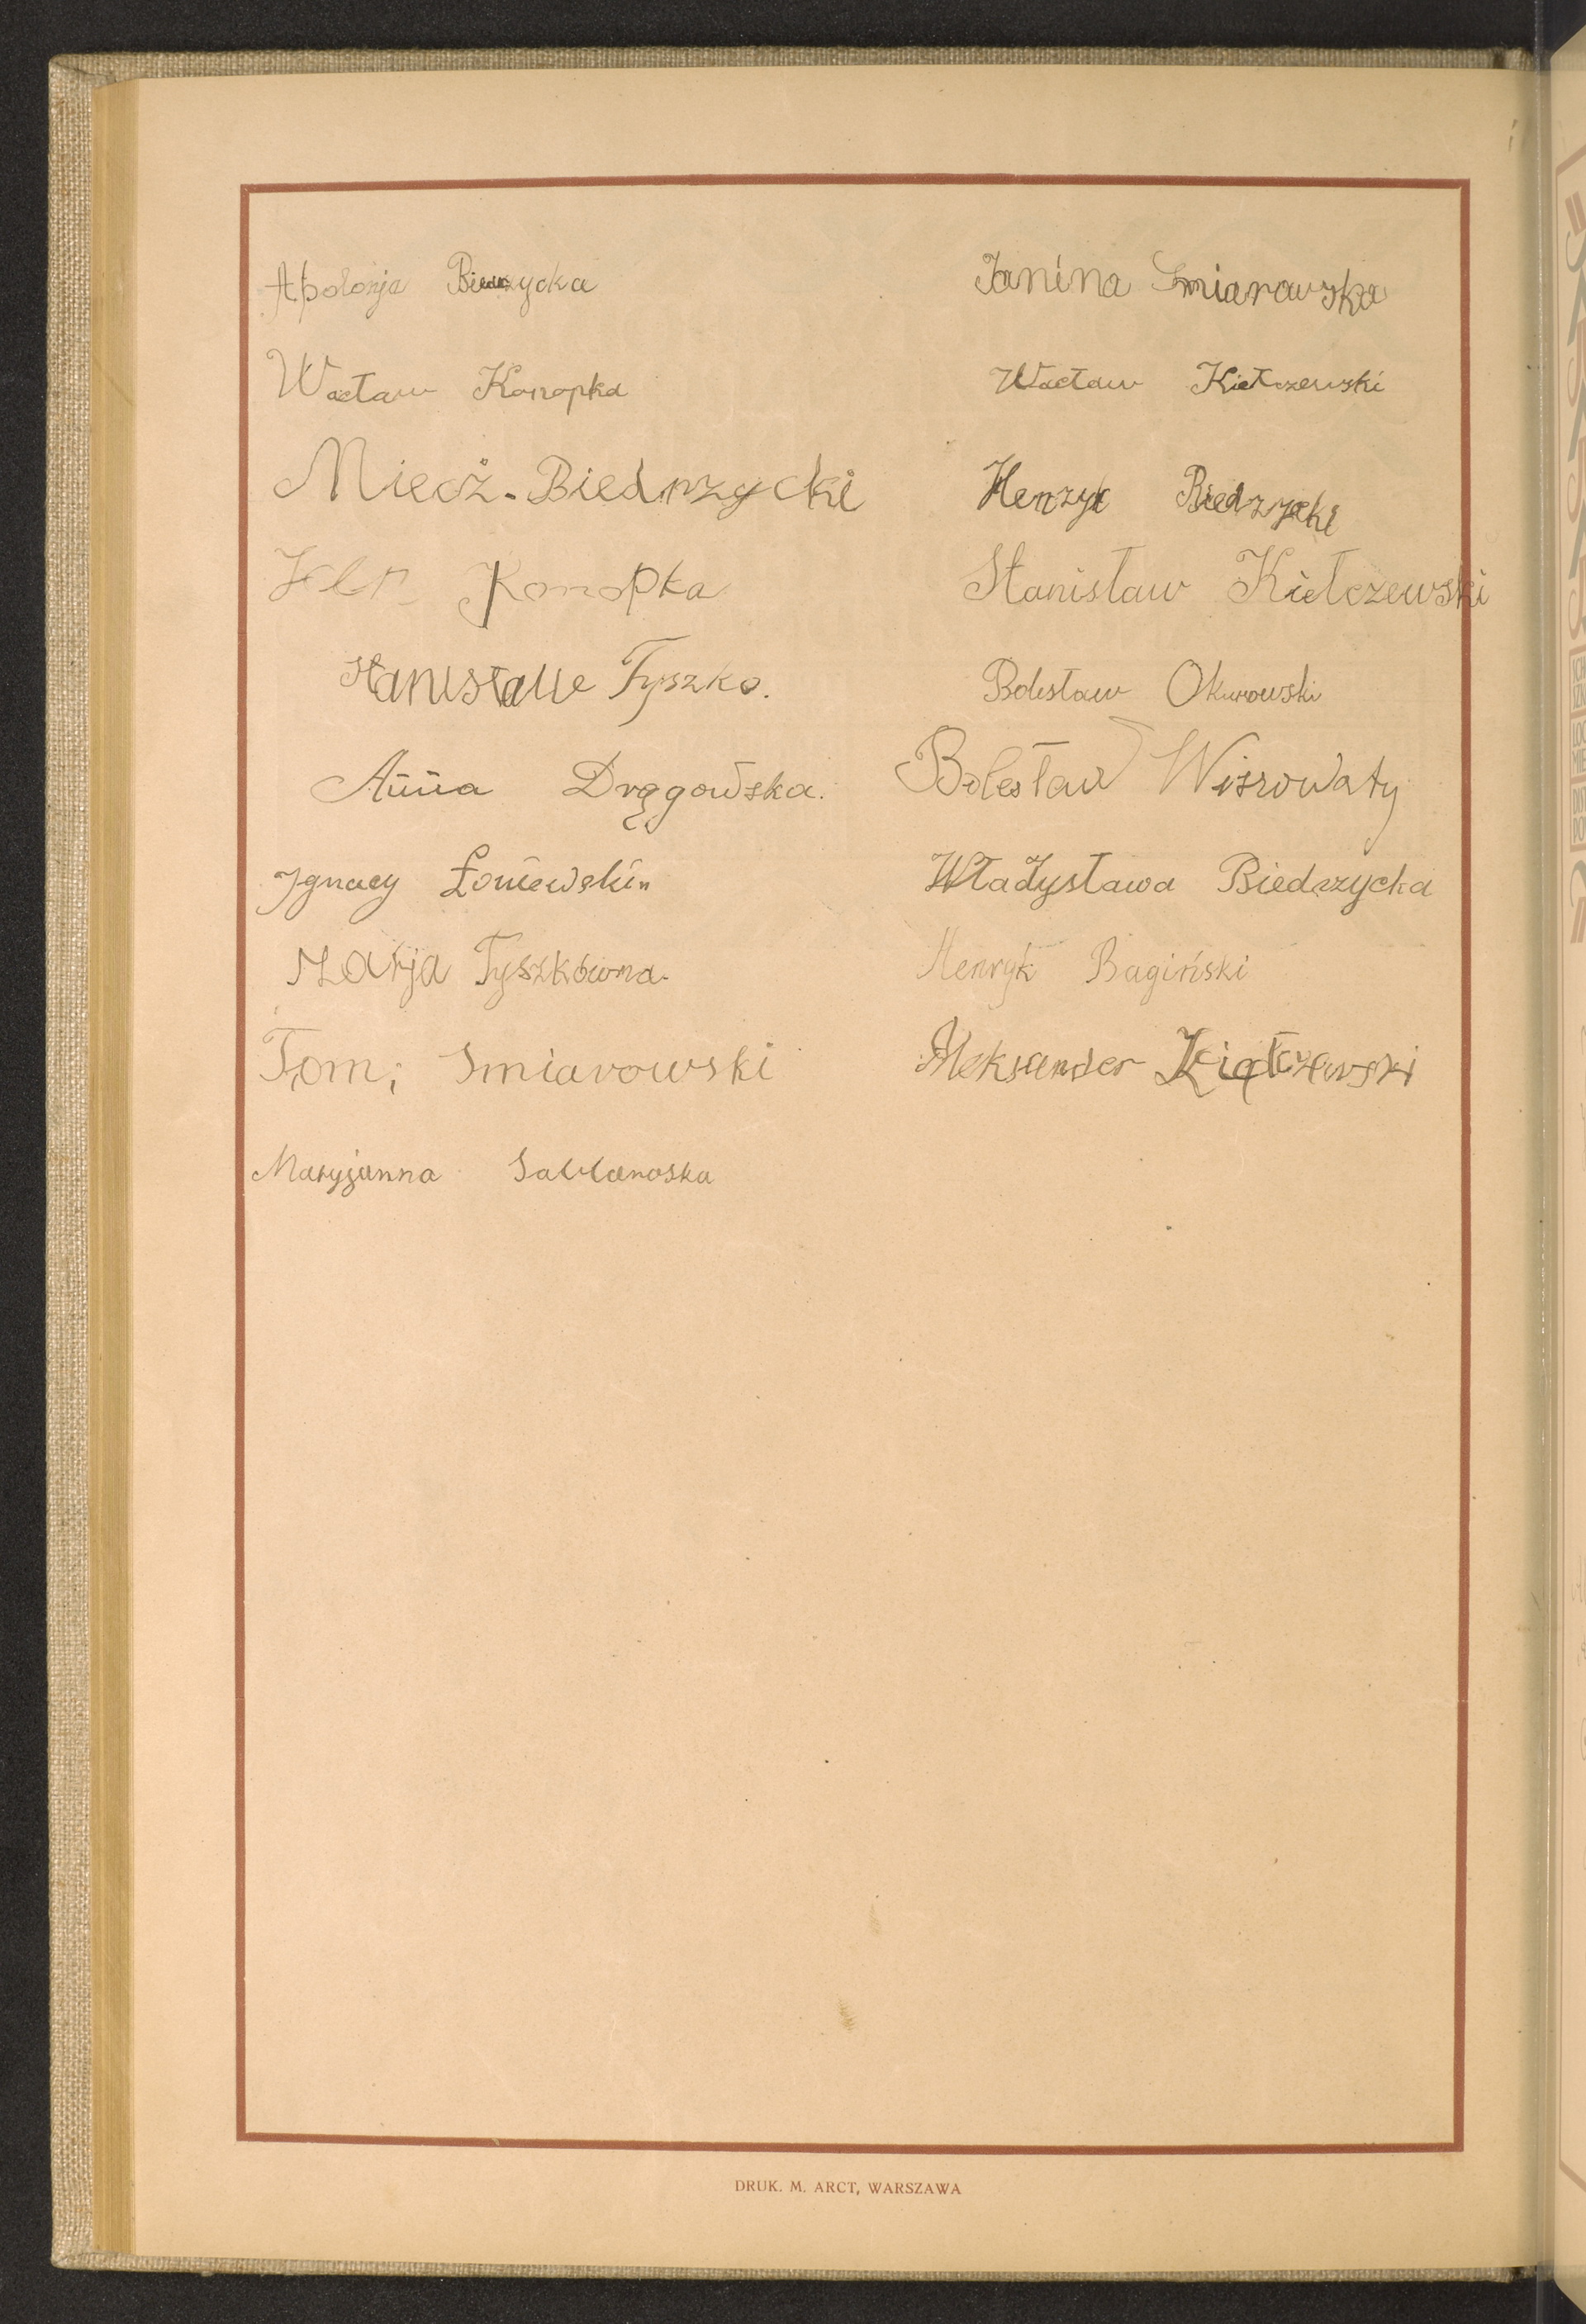 Apolonja Biedrzycka
Wacław Konopka
Miecz. Biedrzycki
Konopka
Stanisław Tyszko.
Anna Drągowska.
Ignacy Łoniewski
Marja Tyszkówna.
Tom; Smiarowski
Maryjanna
Janina Smiarowska
Wacław Kiełczewski
Henryk Biedzycki
Stanisław Kiełczewski
Bolesław Okurowski
Bolesław Wiszowaty
Władysława Biedrzycka
Henryk Bagiński
Aleksander Kiełczewski
DRUK. M. ARCT, WARSZAWA